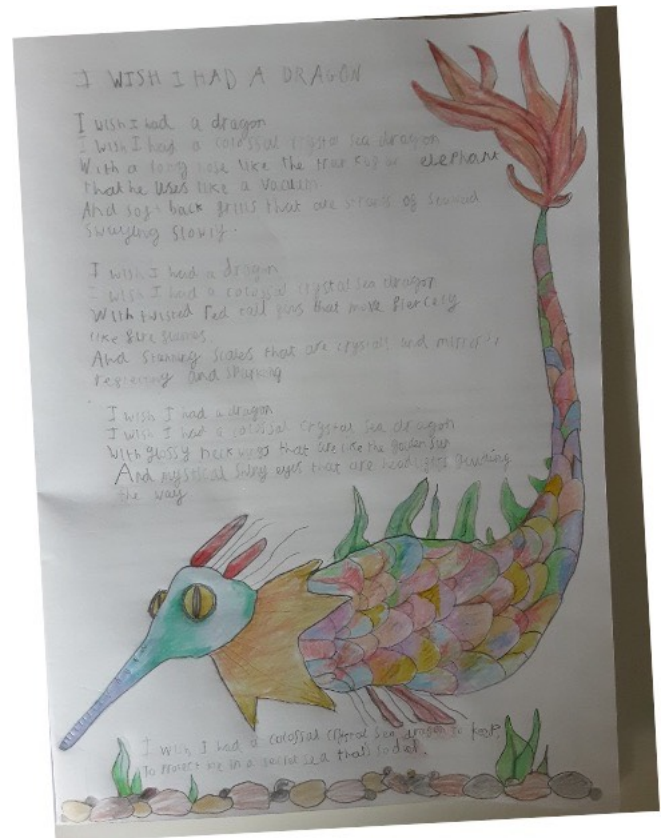 I WISH I HAD A DRAGON
I wish I had a dragon
I wish I had a colossal crystal sea dragon
With a long nose like the trunk of an elephant
that he uses like a vacum
And soft back that are of
Swaying slowly.
I wish I had a dragon
I wish I had a colossal crystal sea dragon
With twisted red tail that move fiercely
like fire flames.
And scales that are crystals and mirrors
and
I wish I had a dragon
I wish I had a colossal crystal sea dragon
With glossy neck that are like the golden sun
And mystical shiny eyes that are headlights guiding
the way
I wish I had a colossal crystal sea dragon to keep,
To protect me in a secret sea that's so